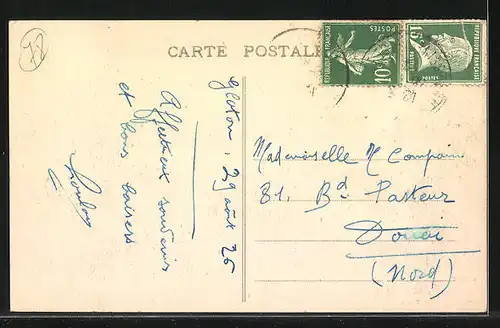 72
CARTE POSTALE
REPUBLIQUE FRANÇAISE
POSTES
10c
15c
POSTES
REPUBLIQUE FRANÇAISE
29 août 26
Affectueux souvenirs
et bons baisers
Mademoiselle M Compain
81, Bd Pasteur
Douai
(Nord)